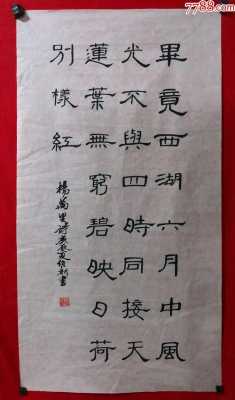 畢竟西湖六月中風
光不與四時同接天
蓮葉無窮碧映日荷
別樣紅
楊萬里詩 書
7788.com